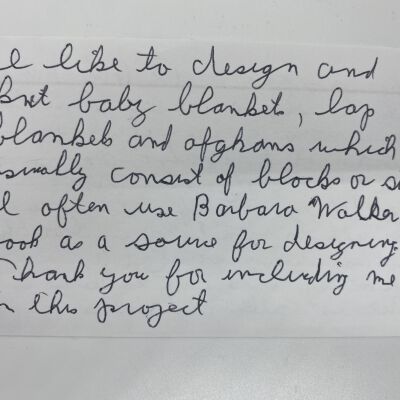 I like to design and
knit baby blankets, lap
blankets and afghans which
usually consist of blocks or
I often use Barbara Walker
book as a source for designing.
Thank you for including me
in this project